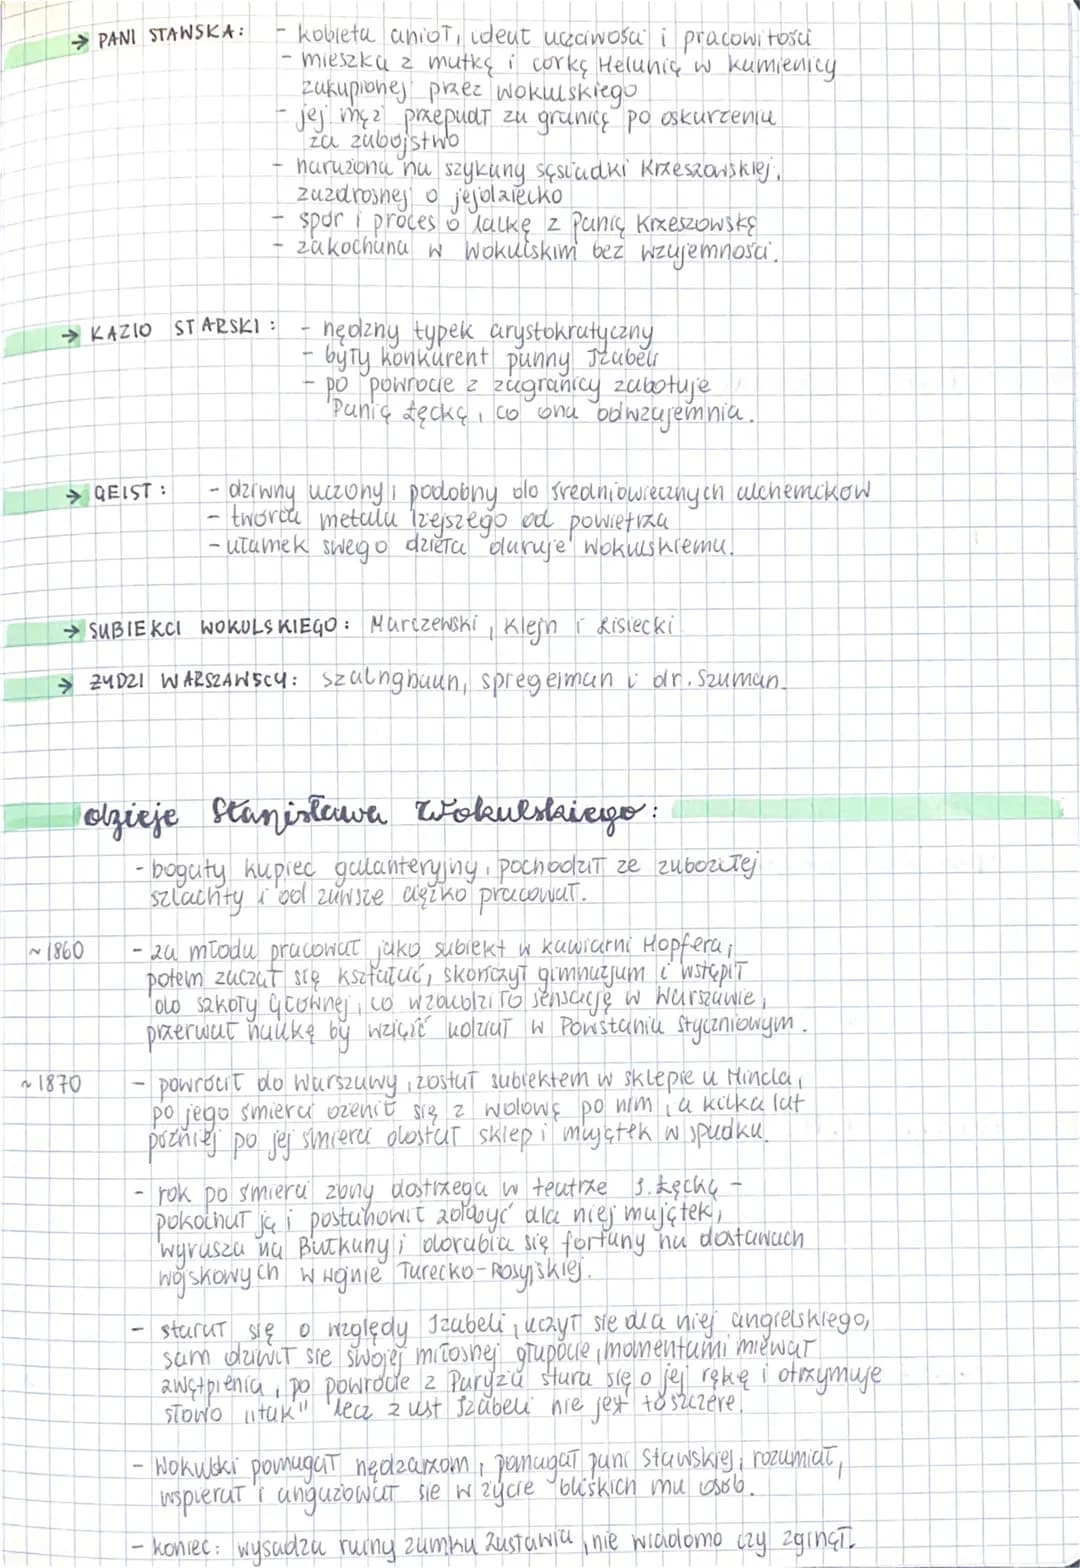 → PANI STAWSKA: - kobieta anioł, ideał uczciwości i pracowitości
- mieszka z matką i córką Helunią w kamienicy
zakupionej przez Wokulskiego
- jej mąż przepadł za granicę po oskarżeniu
za zabójstwo
- narażona na szykany sąsiadki Krzeszowskiej,
zazdrosnej o jej dziecko
- spór i proces o lalkę z Panią Krzeszowską
- zakochana w Wokulskim bez wzajemności.
→ KAZIO STARSKI: - nędzny typek arystokratyczny
- były konkurent panny Izabeli
- po powrocie z zagranicy zabotuje
Panią Łęcką, co ona odwzajemnia.
→ GEIST: - dziwny uczony, podobny do średniowiecznych alchemików
- twórca metalu lżejszego od powietrza
- ułamek swego dzieła daruje Wokulskiemu.
→ SUBIEKCI WOKULSKIEGO: Marczewski, Klejn i Lisiecki
→ ŻYDZI WARSZAWSCY: szalngbaun, spregelman i dr. Szuman.
dzieje Stanisława Wokulskiego:
- bogaty kupiec galanteryjny, pochodził ze zubożałej
szlachty i od zawsze ciężko pracował.
~1860 - za młodu pracował jako subiekt w kawiarni Hopfera,
potem zaczął się kształcić, skończył gimnazjum i wstąpił
do szkoły Głównej, co wzbudziło sensację w Warszawie,
przerwał naukę by wziąść udział w Powstaniu Styczniowym.
~1870 - powrócił do Warszawy, został subiektem w sklepie u Mincla,
po jego śmierci ożenił się z wdową po nim, a kilka lat
później po jej śmierci dostał sklep i majątek w spadku.
- rok po śmierci żony dostrzega w teatrze I. Łęcką -
pokochał ją i postanowił zdobyć dla niej majątek,
wyrusza na Bałkany i dorabia się fortuny na dostawach
wojskowych w wojnie Turecko-Rosyjskiej.
- starał się o względy Izabeli, uczył sie dla niej angielskiego,
sam dziwił sie swojej miłosnej głupocie, momentami miewał
zwątpienia, po powrocie z Paryża stara się o jej rękę i otrzymuje
słowo "tak" lecz z ust Izabeli nie jest to szczere.
- Wokulski pomagał nędzarzom, pomagał pani Stawskiej, rozumiał,
wspierał i angażował sie w życie bliskich mu osób.
- koniec: wysadza ruiny zamku Zasławia, nie wiadomo czy zginął.